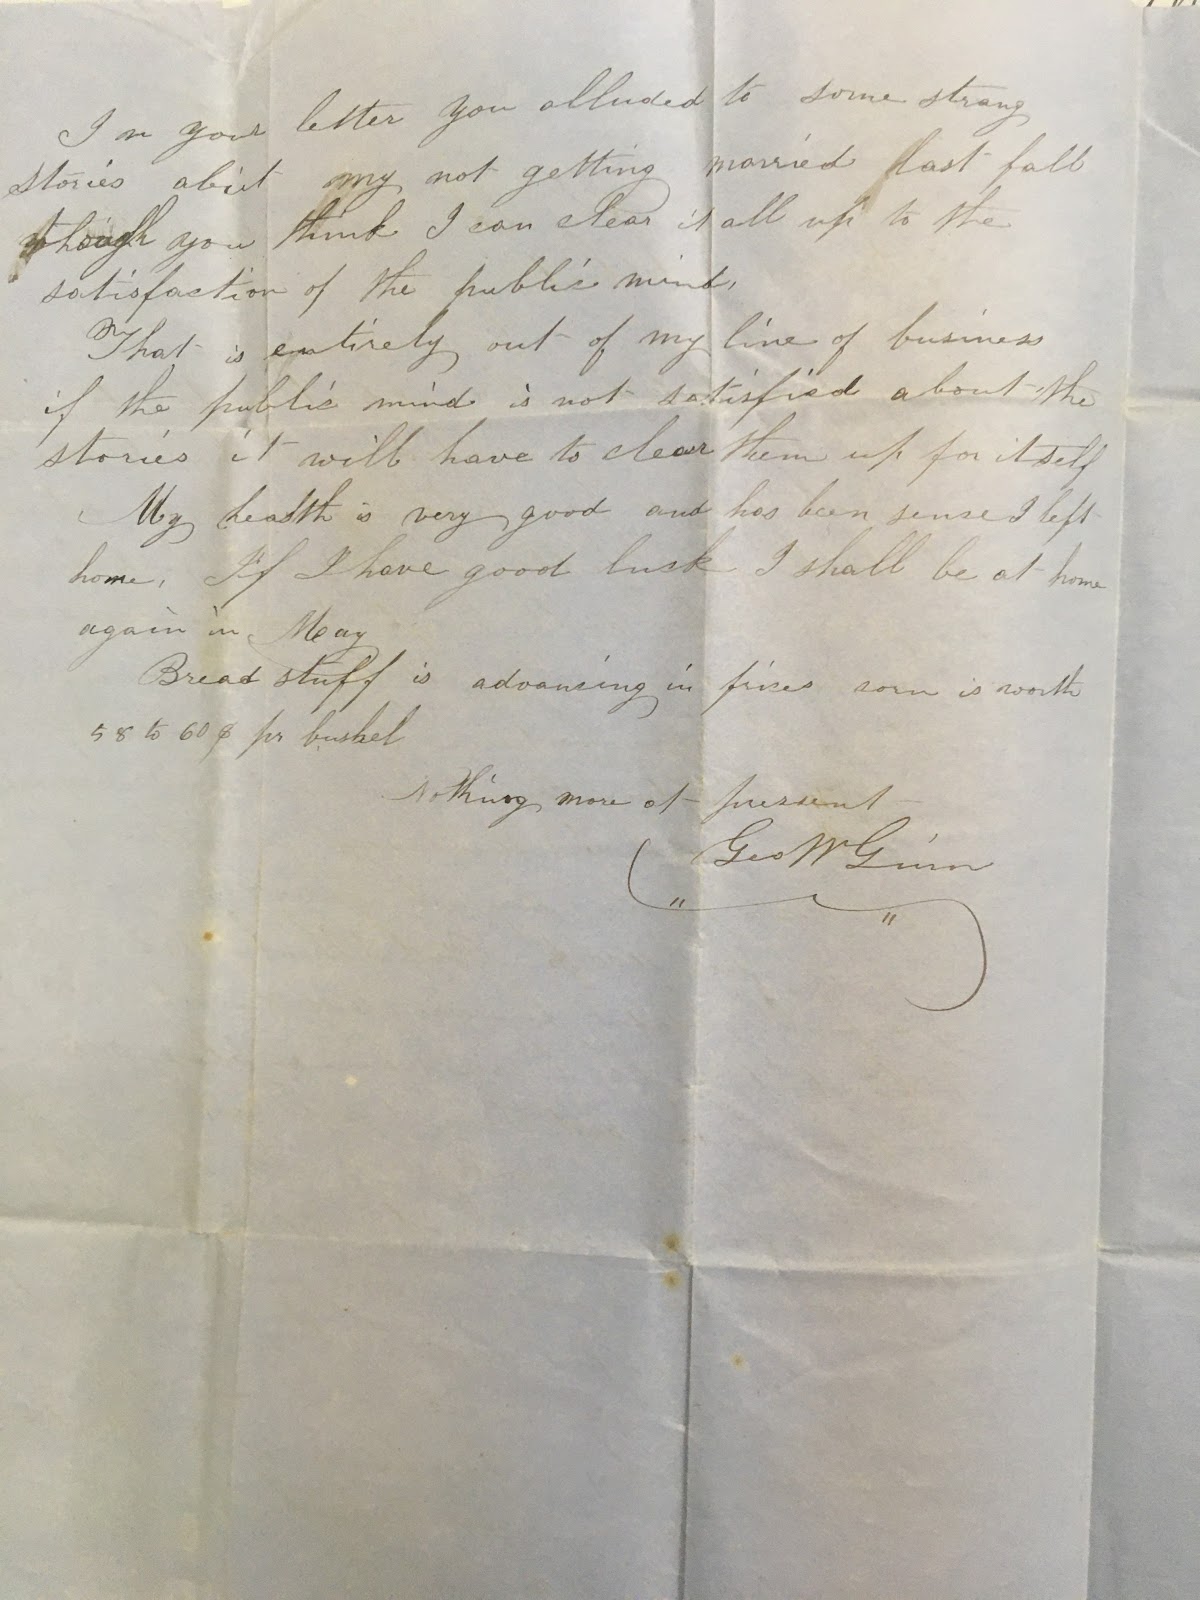 In your letter you alluded to some strang
stories abiut my not getting married last fall
though you think I can clear it all up to the
satisfaction of the public mind,
That is entirely out of my line of business
if the public mind is not satisfied about the
stories it will have to clear them up for itself
My health is very good and has been sense I left
home, If I have good lusk I shall be at home
again in May
Bread stuff is advansing in prises corn is worth
58 to 60 ¢ pr bushel
Nothing more at present
Geo W Ginn